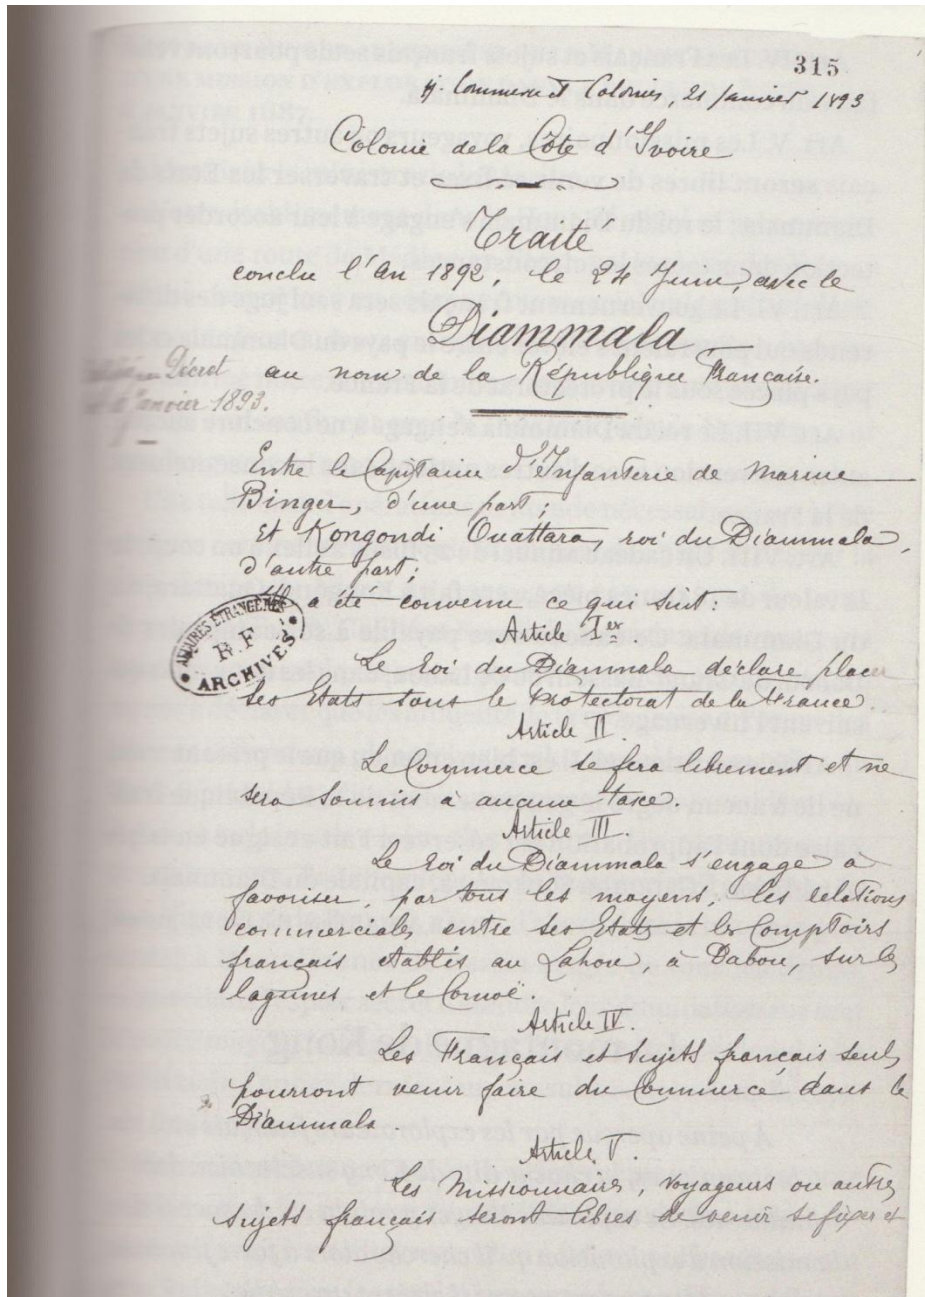 315
Commerce et Colonies, 21 Janvier 1893
Colonie de la Côte d'Ivoire
Traité
conclu l'An 1892, le 24 Juin, avec le
Diammala
Décret au nom de la République Française.
Janvier 1893.
Entre le Capitaine d'Infanterie de Marine
Binger, d'une part;
Et Kongondi Ouattara, roi du Diammala,
d'autre part;
Il a été convenu ce qui suit:
AFFAIRES ÉTRANGÈRES
R F
ARCHIVES
Article Ier
Le roi du Diammala déclare placer
ses Etats sous le Protectorat de la France
Article II.
Le Commerce se fera librement et ne
sera soumis à aucune taxe.
Article III.
Le roi du Diammala s'engage à
favoriser, par tous les moyens, les relations
commerciales entre ses Etats et les Comptoirs
français établis au Lahou, à Dabou, sur les
lagunes et le Comoë.
Article IV.
Les Français et sujets français seuls
pourront venir faire du Commerce dans le
Diammala
Article V.
Les Missionnaires, voyageurs ou autres
sujets français seront libres de venir se fixer et